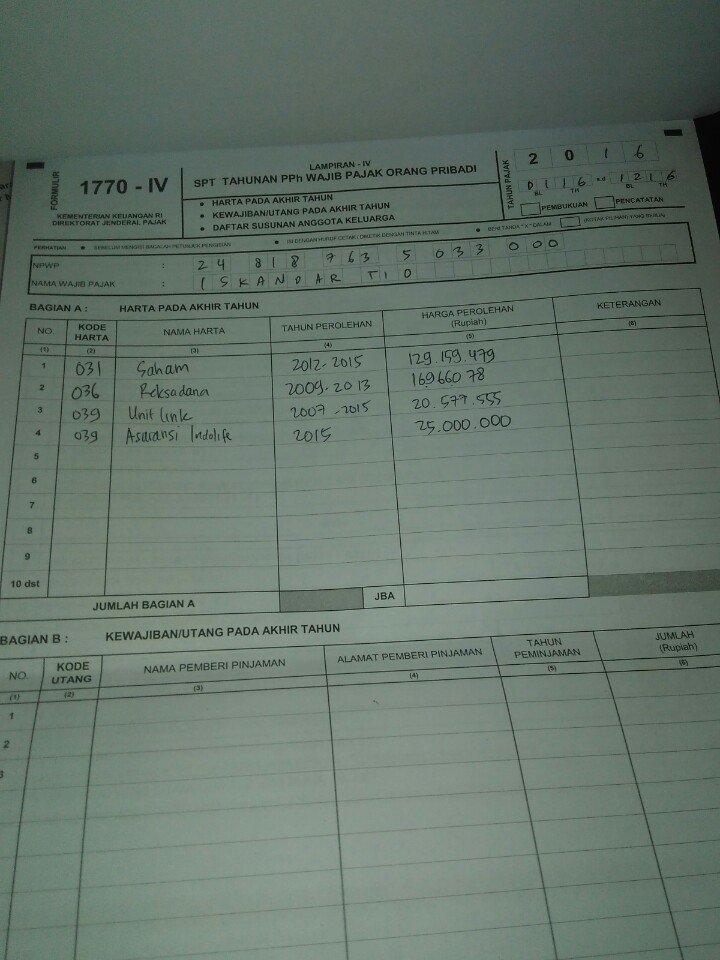 FORMULIR
1770 - IV
KEMENTERIAN KEUANGAN RI
DIREKTORAT JENDERAL PAJAK
LAMPIRAN - IV
SPT TAHUNAN PPh WAJIB PAJAK ORANG PRIBADI
• HARTA PADA AKHIR TAHUN
• KEWAJIBAN/UTANG PADA AKHIR TAHUN
• DAFTAR SUSUNAN ANGGOTA KELUARGA
TAHUN PAJAK
2 0 1 6
0 1 1 6 s.d 1 2 1 6
BL TH BL TH
PEMBUKUAN PENCATATAN
PERHATIAN • SEBELUM MENGISI BACALAH PETUNJUK PENGISIAN • ISI DENGAN HURUF CETAK / DIKETIK DENGAN TINTA HITAM • BERI TANDA "X" DALAM (KOTAK PILIHAN) YANG SESUAI
NPWP : 24 818 763 5 033 000
NAMA WAJIB PAJAK : ISKANDAR TIO
BAGIAN A : HARTA PADA AKHIR TAHUN
NO. KODE HARTA NAMA HARTA TAHUN PEROLEHAN HARGA PEROLEHAN (Rupiah) KETERANGAN
(1) (2) (3) (4) (5) (6)
1 031 Saham 2012-2015 129.159.479
2 036 Reksadana 2009-2013 16966078
3 039 Unit link 2007-2015 20.577.555
4 039 Asuransi Indolife 2015 25.000.000
5
6
7
8
9
10 dst
JUMLAH BAGIAN A JBA
BAGIAN B : KEWAJIBAN/UTANG PADA AKHIR TAHUN
NO. KODE UTANG NAMA PEMBERI PINJAMAN ALAMAT PEMBERI PINJAMAN TAHUN PEMINJAMAN JUMLAH (Rupiah)
(1) (2) (3) (4) (5) (6)
1
2
3